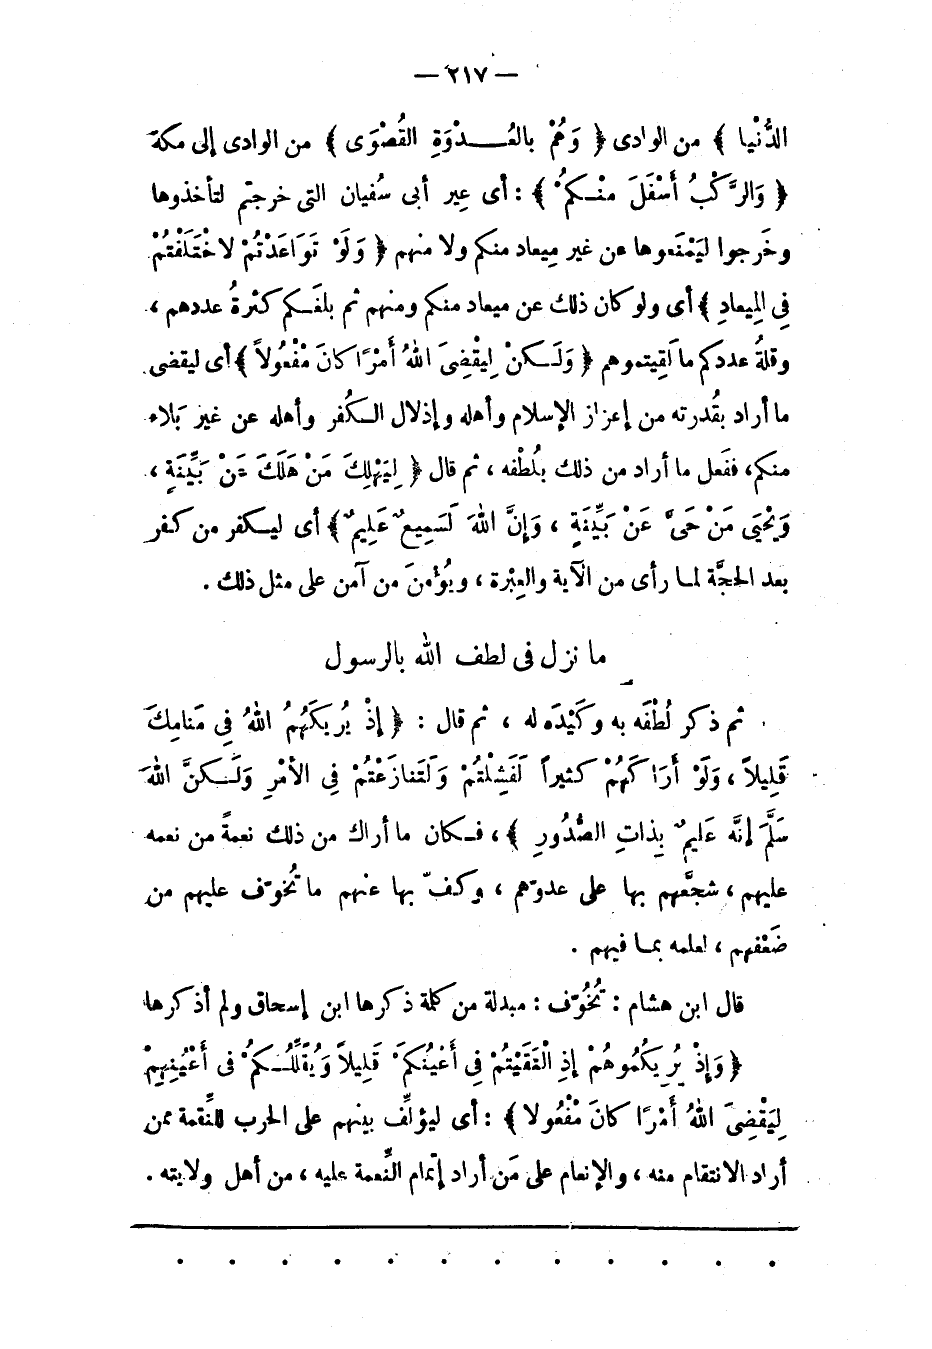 — ٢١٧ —
الدُّنْيا ﴾ من الوادى ﴿ وَهُمْ بالعُـــدْوَةِ القُصْوَى ﴾ من الوادى إلى مكة
﴿ وَالرَّكْبُ أَسْفَلَ مِنْـكمُ ْ﴾ : أى عِير أبى سُفيان التى خرجتم لتأخذوها
وخَرجوا ليَمْنَعوها عن غير مِيعاد منكم ولا منهم ﴿ وَلَوْ تَوَاعَدْتُمْ لاخْتَلَفْتُمْ
فِى المِيعادِ ﴾ أى ولو كان ذلك عن ميعاد منكم ومنهم ثم بلغـكم كثرةُ عددهم ،
وقلةُ عددكم ما لَقِيتموهم ﴿ وَلَـكنْ لِيقْضِىَ اللهُ أَمْرًا كانَ مْفْعُولاً ﴾ أى ليقضى
ما أراد بقُدرته من إعزاز الإسلام وأهله وإذلال الـكُفر وأهله عن غير بَلاء
منكم، ففَعل ما أراد من ذلك بلُطْفه ، ثم قال ﴿ لِيَهْلِكَ مَنْ هَلَكَ عَنْ بَيِّنَةٍ ،
وَيَحْيَى مَنْ حَىَّ عَنْ بَيِّنَةٍ ، وَإِنَّ اللهَ لَسَمِيعٌ عَلِيمٌ ﴾ أى ليـكفر من كفر
بعد الحجَّة لمـا رأى من الآية والعِبْرة ، ويُؤمنَ من آمن على مثل ذلك .
ما نزل فى لطف الله بالرسول
ثم ذكر لُطْفَه به وكَيْدَه له ، ثم قال : ﴿ إذْ يُرِيكَهُمُ اللهُ فِى مَنامِكَ
قَلِيلاً ، وَلَوْ أَرَاكَهُمْ كثيراً لَفَشِلْتُمْ وَلَتَنازَعْتُمْ فِى الأمْرِ وَلَـكنَّ اللهَ
سَلَّمَ إنَّه عَليمٌ بِذاتِ الصُّدُورِ ﴾ ، فـكان ما أراك من ذلك نعمةً من نعمه
عليهم ، شجَّعهم بها على عدوّهم ، وكفّ بها عنهم ما تُخوّف عليهم من
ضَعْفهم ، لعلمه بمـا فيهم .
قال ابن هشام : تُخُوّف : مبدلة من كلمة ذكرها ابن إسحاق ولم أذكرها
﴿ وَإِذْ يُرِيكُمُوهُمْ إذِ الْتَقَيْتُمْ فِى أَعْيُنكمَْ قَلِيلاً وَيُقَلِّلُـكمُْ فى أَعْيُنِهِمْ
لِيَقْضِىَ اللهُ أَمْرًا كانَ مْفْعُولا ﴾ : أى ليؤلِّف بينهم على الحرب للنِّقمة ممن
أراد الانتقام منه ، والإنعام على مَن أراد إتمام النِّعمة عليه ، من أهل ولايته .
. . . . . . . . . . . .